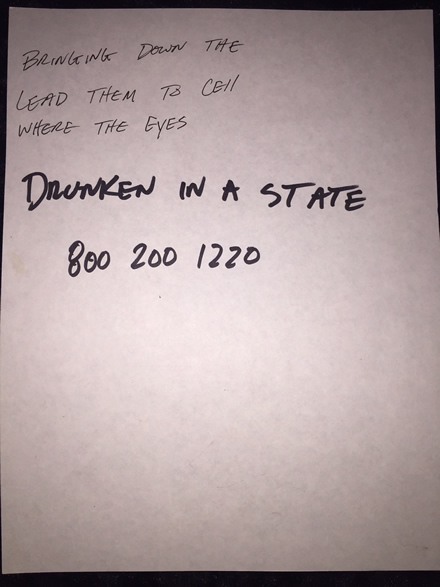 BRINGING DOWN THE
LEAD THEM TO CEll
WHERE THE EYES
DRUNKEN IN A STATE
800 200 1220